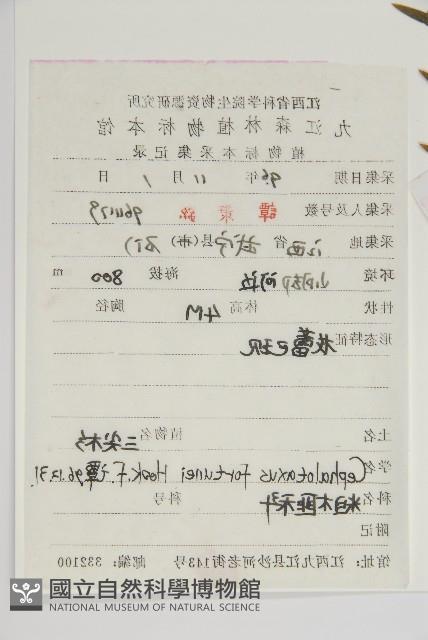 江西省科学院生物资源研究所
九江森林植物标本馆
植物标本采集记录
采集日期 96年 11月 1 日
采集人及号数 譚策銘 961129
采集地 江西省 武宁县(市)
环境 海拔 800 m
性状 体高 4M 胸径
形态特征
土名 植物名 三尖杉
学名 Cephalotaxus fortunei Hook.F. 譚 96.12.31.
科名 粗榧科 科号
附记
馆址：江西九江县沙河老街143号 邮编：332100
國立自然科學博物館
NATIONAL MUSEUM OF NATURAL SCIENCE